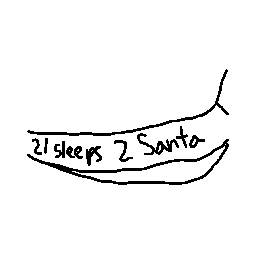 21 sleeps 2 Santa